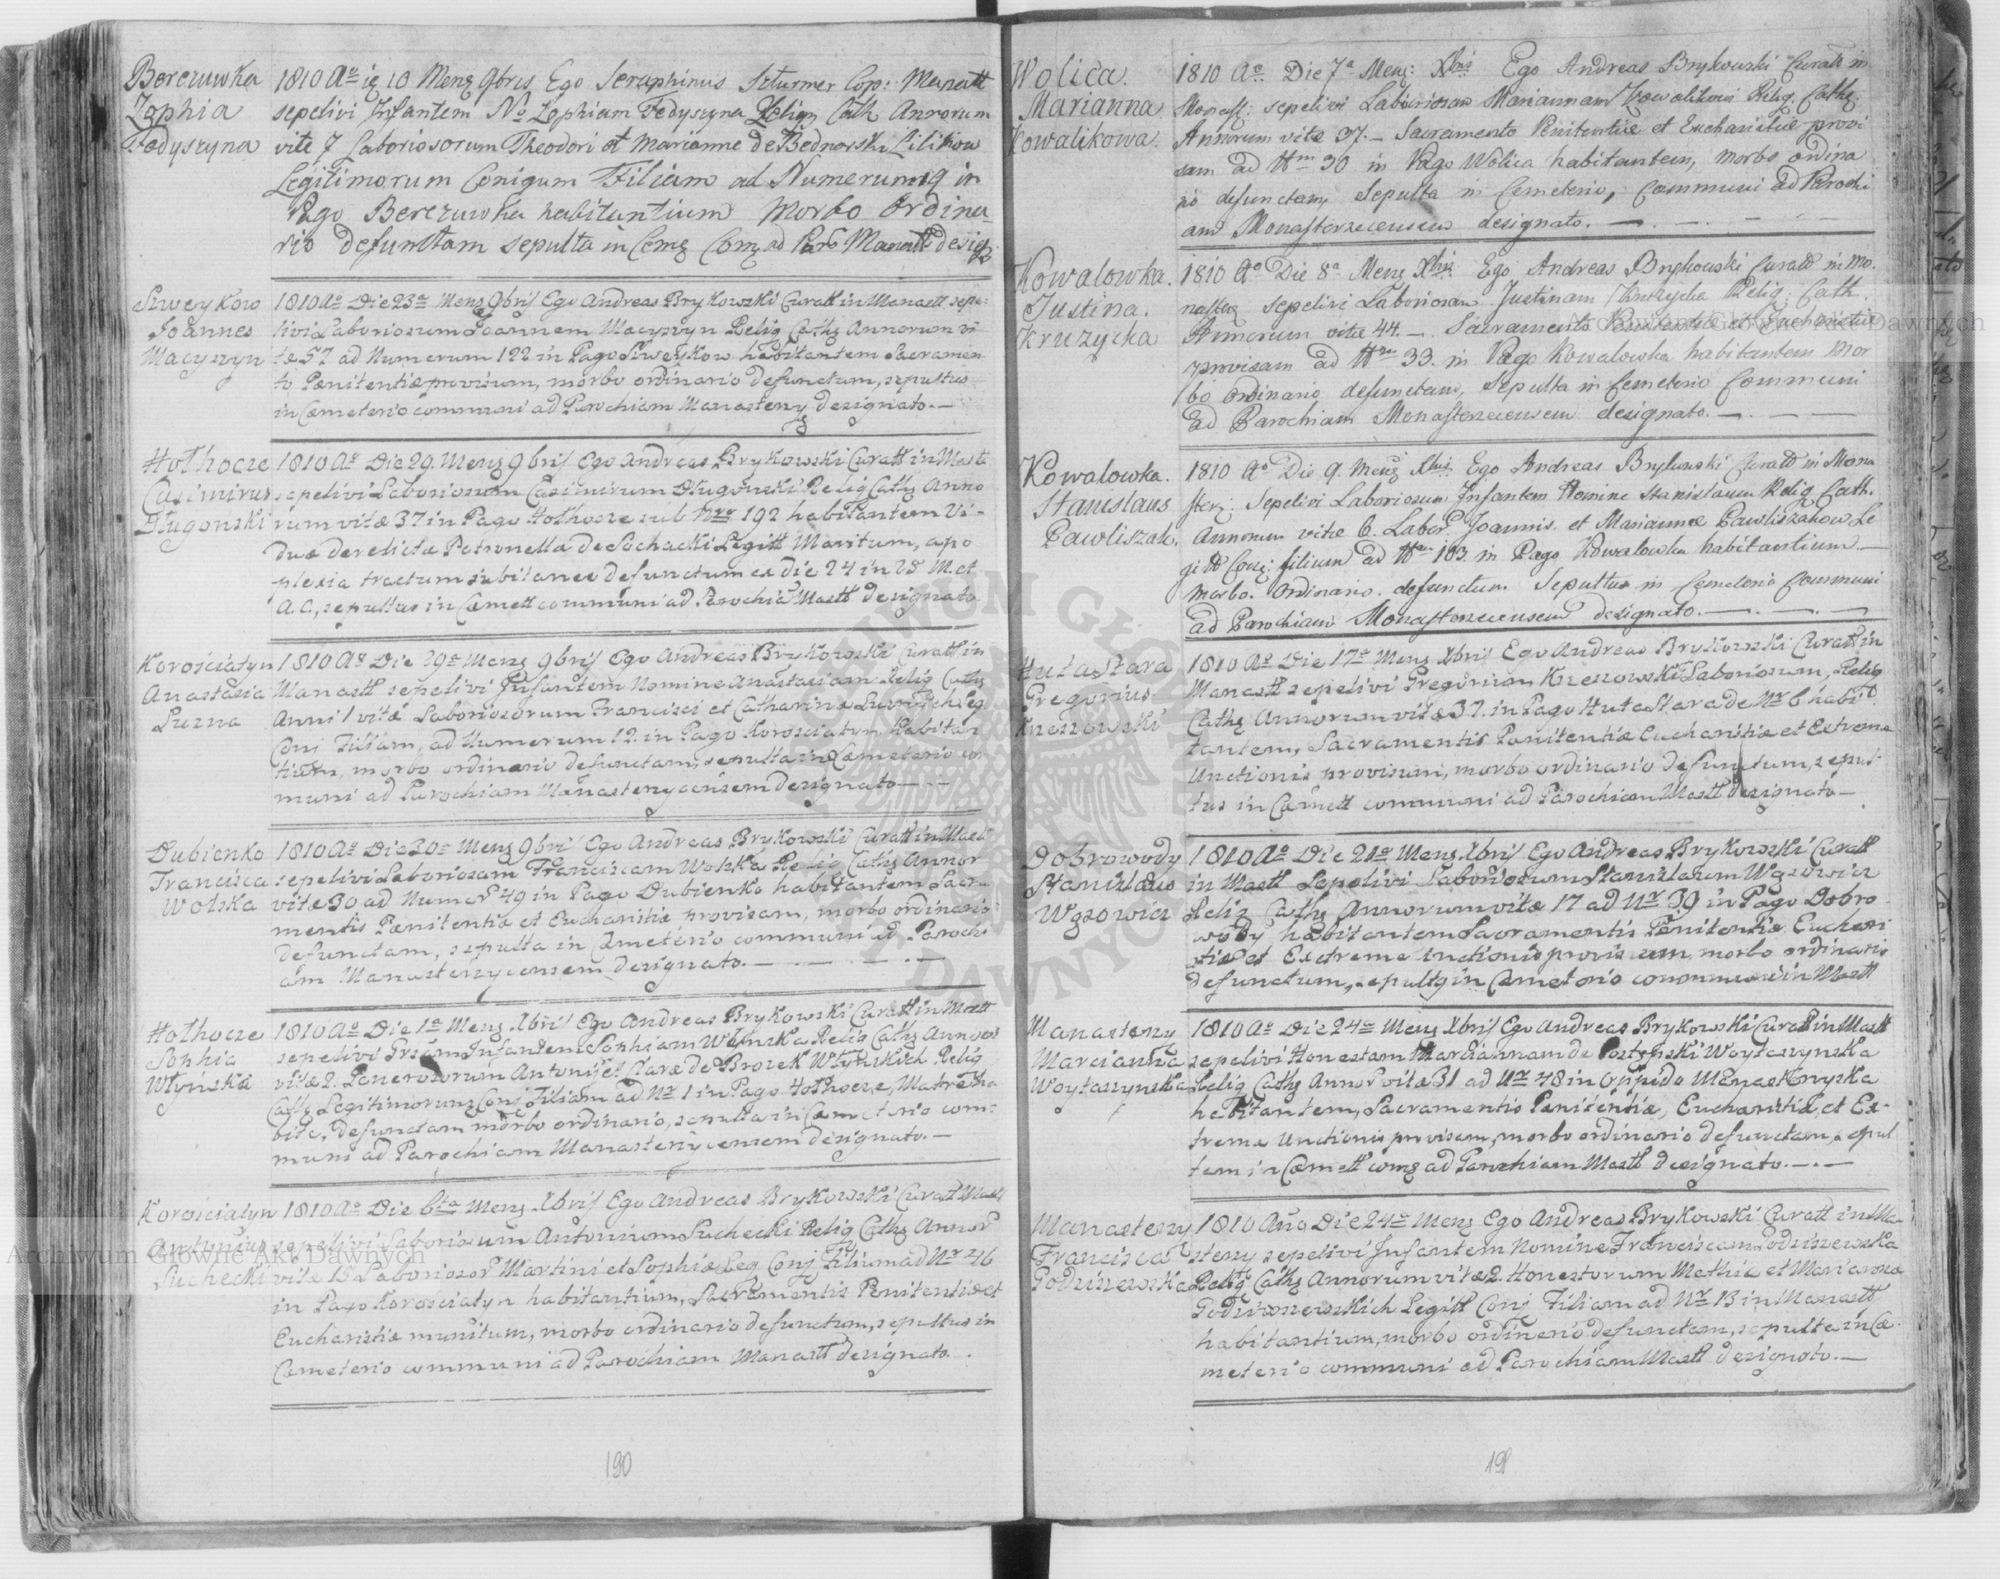 Berezuwka
Zophia
Fedyszyna
1810 Ao 10 Menz 9bris Ego Seraphinus Szturmer Cop: Manastt
sepelivi Infantem No Zophiam Fedyszyna Relign Cath Annorum
vite 7 Laboriosorum Theodori et Marianne de Bednarski
Legitimorum Conigum Filiam ad Numerum 19 in
Pago Berezuwka habitantium Morbo Ordina-
rio defunctam sepulta in Cemz Comz ad Paro Manastt desig
Siweykow
Joannes
Macyszyn
1810 Ao Die 23a Menz 9bris Ego Andreas Brykowski Curatt in Manastt sepe-
livi Laboriosum Joannem Macyszyn Relig Cathz Annorum vi
tæ 57 ad Numerum 122 in Pago Siweykow habitantem Sacramen
to Pœnitentiæ provisum, morbo ordinario defunctum, sepultus
in Cœmeterio communi ad Parochiam Manasterz designato.—
Hołhocze
Casimirus
Długonski
1810 Ao Die 29 Menz 9bris Ego Andreas Brykowski Curatt in Mastt
sepelivi Laboriosum Casimirum Długonski Relig Cathz Anno
rum vitæ 37 in Pago Hołhocze sub Nro 192 habitantem Vi-
duæ derelictæ Petronella de Sochacki Legitt Maritum, apo
plexia tractum subitanee defunctum ex die 24 in 25 M. et
A. C., sepultus in Cœmett communi ad Parochiã Mastt designato
Korościatyn
Anastasia
Luzna
1810 Ao Die 29a Menz 9bris Ego Andreas Brykowski Curatt in
Manastt sepelivi Infantem Nomine Anastasiam Relig Cathz
Anni 1 vitæ Laboriosorum Francisci et Catharinæ Leg
Conj Filiam, ad Numerum 12 in Pago Korosciatyn habitan
tium, morbo ordinario defunctam, sepulta in Cœmeterio co-
muni ad Parochiam Manasterzycensem designato—
Dubienko
Francisca
Wolska
1810 Ao Die 30a Menz 9bris Ego Andreas Brykowski Curatt in Mast
sepelivi Laboriosam Franciscam Wolska Relig Cathz Annor
vitæ 30 ad Numer 49 in Pago Dubienko habitantem Sacra-
mentis Pœnitentiæ et Eucharistiæ provisam, morbo ordinario
defunctam, sepulta in Cœmeterio communi ad Parochi
am Manasterzycensem designato.—
Hołhocze
Sophia
Włyńska
1810 Ao Die 1a Menz Xbris Ego Andreas Brykowski Curatt in Mastt
sepelivi Infantem Sophiam Włynska Relig Cathz Annor
vitæ 2. Generosorum Antonij et Claræ de Brozek Włynskich Relig
Cathz Legitimorum Conj Filiam ad Nr 1 in Pago Hołhocze,
defunctam morbo ordinario, sepulta in Cœmeterio com-
muni ad Parochiam Manasterzycensem designato.—
Korościatyn
Antonius
Suchecki
1810 Ao Die 6ta Menz Xbris Ego Andreas Brykowski Curatt Mastt
sepelivi Laboriosum Antonium Suchecki Relig Cathz Annor
vitæ 13 Laboriosor Martini et Sophiæ Leg Conj Filium ad Nr 46
in Pago Korosciatyn habitantium, Sacramentis Penitentiæ et
Eucharistiæ munitum, morbo ordinario defunctum, sepultus in
Cœmeterio communi ad Parochiam Manastt designato.
190
Wolica.
Marianna
Kowalikowa.
1810 Ao Die 7a Menz: Xbris Ego Andreas Brykowski Curatt in
Monast: sepelivi Laboriosam Mariannam Kowalikowa Relig. Cathz
Annorum vitæ 37.— Sacramento Penitentiæ et Eucharistiæ provi
sam ad Nrm 30 in Pago Wolica habitantem, morbo ordina
rio defunctam, Sepulta in Cemeterio, communi ad Parochi
am Monasterzecensem designato.—
Kowalowka.
Justina.
Kruzycka
1810 Ao Die 8a Menz Xbris Ego Andreas Brykowski Curatt in Mo-
nasterz sepelivi Laboriosam Justinam Kruzycka Relig: Cath.
Annorum vitæ 44.— Sacramento Penitentiæ et Eucharistiæ
provisam ad Nrm 33. in Pago Kowalowka habitantem Mor
bo ordinario defunctam, Sepulta in Cemeterio Communi
ad Parochiam Monasterzecensem designato.—
Kowalowka.
Stanislaus
Pawliszak.
1810 Ao Die 9. Menz Xbris Ego Andreas Brykowski Curatt in Mona
sterz: Sepelivi Laboriosum Infantem Nomine Stanislaum Relig Cath.
Annorum vitæ 6. Labor Joannis. et Mariannæ Pawliszakow Le
gitt Conj: filium ad Nrm 103 in Pago Kowalowka habitantium—
morbo. Ordinario. defunctum. Sepultus in Cemeterio Communi
ad Parochiam Monasterzecensem designato.—
Huta Stara
Gregorius
Kneszowski
1810 Ao Die 17a Menz Xbris Ego Andreas Brykowski Curatt in
Manastt sepelivi Gregorium Kneszowski Laboriosum, Relig
Cathz Annorum vitæ 37 in Pago Huta Stara de Nr 6 habi
tantem, Sacramentis Pœnitentiæ Eucharistiæ et Extrema
Unctionis provisum, morbo ordinario defunctum, sepul-
tus in Cœmett communi ad Parochiam Mastt designato—
Dobrowody
Stanislaus
Wąsowicz
1810 Ao Die 21a Menz Xbris Ego Andreas Brykowski Curatt
in Mastt Sepelivi Laboriosum Stanislaum Wąsowicz
Relig Cathz Annorum vitæ 17 ad Nr 39 in Pago Dobro-
wody habitantem Sacramentis Pœnitentiæ Euchari
stiæ et Extreme Unctionis provisum, morbo ordinario
defunctum, sepultg in Cœmeterio communi in Mastt
Manasterz
Marcianna
Woytaszynska
1810 Ao Die 24a Menz Xbris Ego Andreas Brykowski Curatt in Mastt
sepelivi Honestam Marciannam de Woytaszynska
Relig Cathz Annor vitæ 31 ad Nr 48 in Oppido
habitantem, Sacramentis Pœnitentiæ, Eucharistiæ, et Ex-
trema Unctionis provisam, morbo ordinario defunctam, sepul
tam in Cœmett comz ad Parochiam Mastt designato.—
Manasterz
Francisca
1810 Ano Die 24a Menz Ego Andreas Brykowski Curatt in Ma-
sterz sepelivi Infantem Nomine Franciscam
Relig Cathz Annorum vitæ 2 Honestorum Mathiæ et Marianna
Legitt Conj Filiam ad Nr 13 in Manastt
habitantium, morbo ordinerio defunctam, sepulta in Cœ-
meterio communi ad Parochiam Mastt designato.—
191
ARCHIWUM GŁÓWNE AKT DAWNYCH
Archiwum Główne Akt Dawnych
Archiwum Główne Akt Dawnych